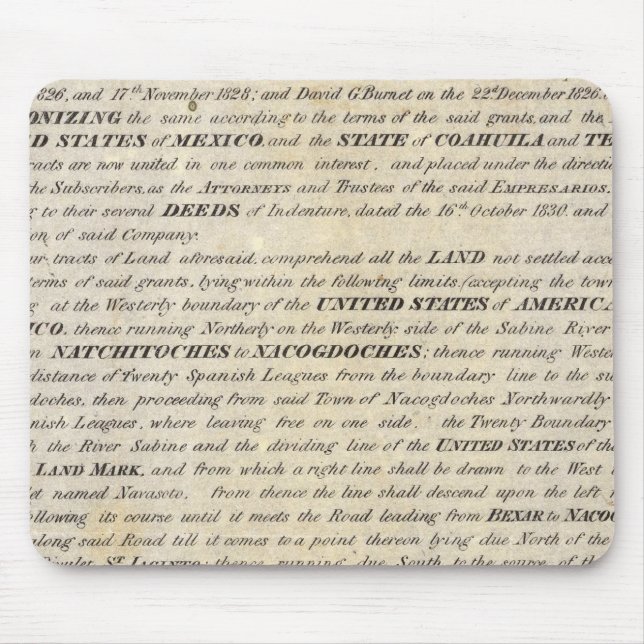 1826, and 17th November 1828; and David G. Burnet on the 22d December 1826.
ONIZING the same according to the terms of the said grants, and the
D STATES of MEXICO, and the STATE of COAHUILA and TE
racts are now united in one common interest, and placed under the directi
he Subscribers, as the ATTORNEYS and Trustees of the said EMPRESARIOS,
g to their several DEEDS of Indenture, dated the 16th October 1830. and
on of said Company.
ur tracts of Land aforesaid, comprehend all the LAND not settled acco
terms of said grants, lying within the following limits, (excepting the town
g at the Westerly boundary of the UNITED STATES of AMERICA
ICO, thence running Northerly on the Westerly side of the Sabine River
n NATCHITOCHES to NACOGDOCHES; thence running Weste
distance of Twenty Spanish Leagues from the boundary line to the su
doches, then proceeding from said Town of Nacogdoches Northwardly
nish Leagues, where leaving free on one side, the Twenty Boundary
h the River Sabine and the dividing line of the UNITED STATES of the
LAND MARK, and from which a right line shall be drawn to the West
let named Navasoto, from thence the line shall descend upon the left
ollowing its course until it meets the Road leading from BEXAR to NACOG
along said Road till it comes to a point thereon lying due North of the
Rivulet ST JACINTO; thence running due South to the source of the